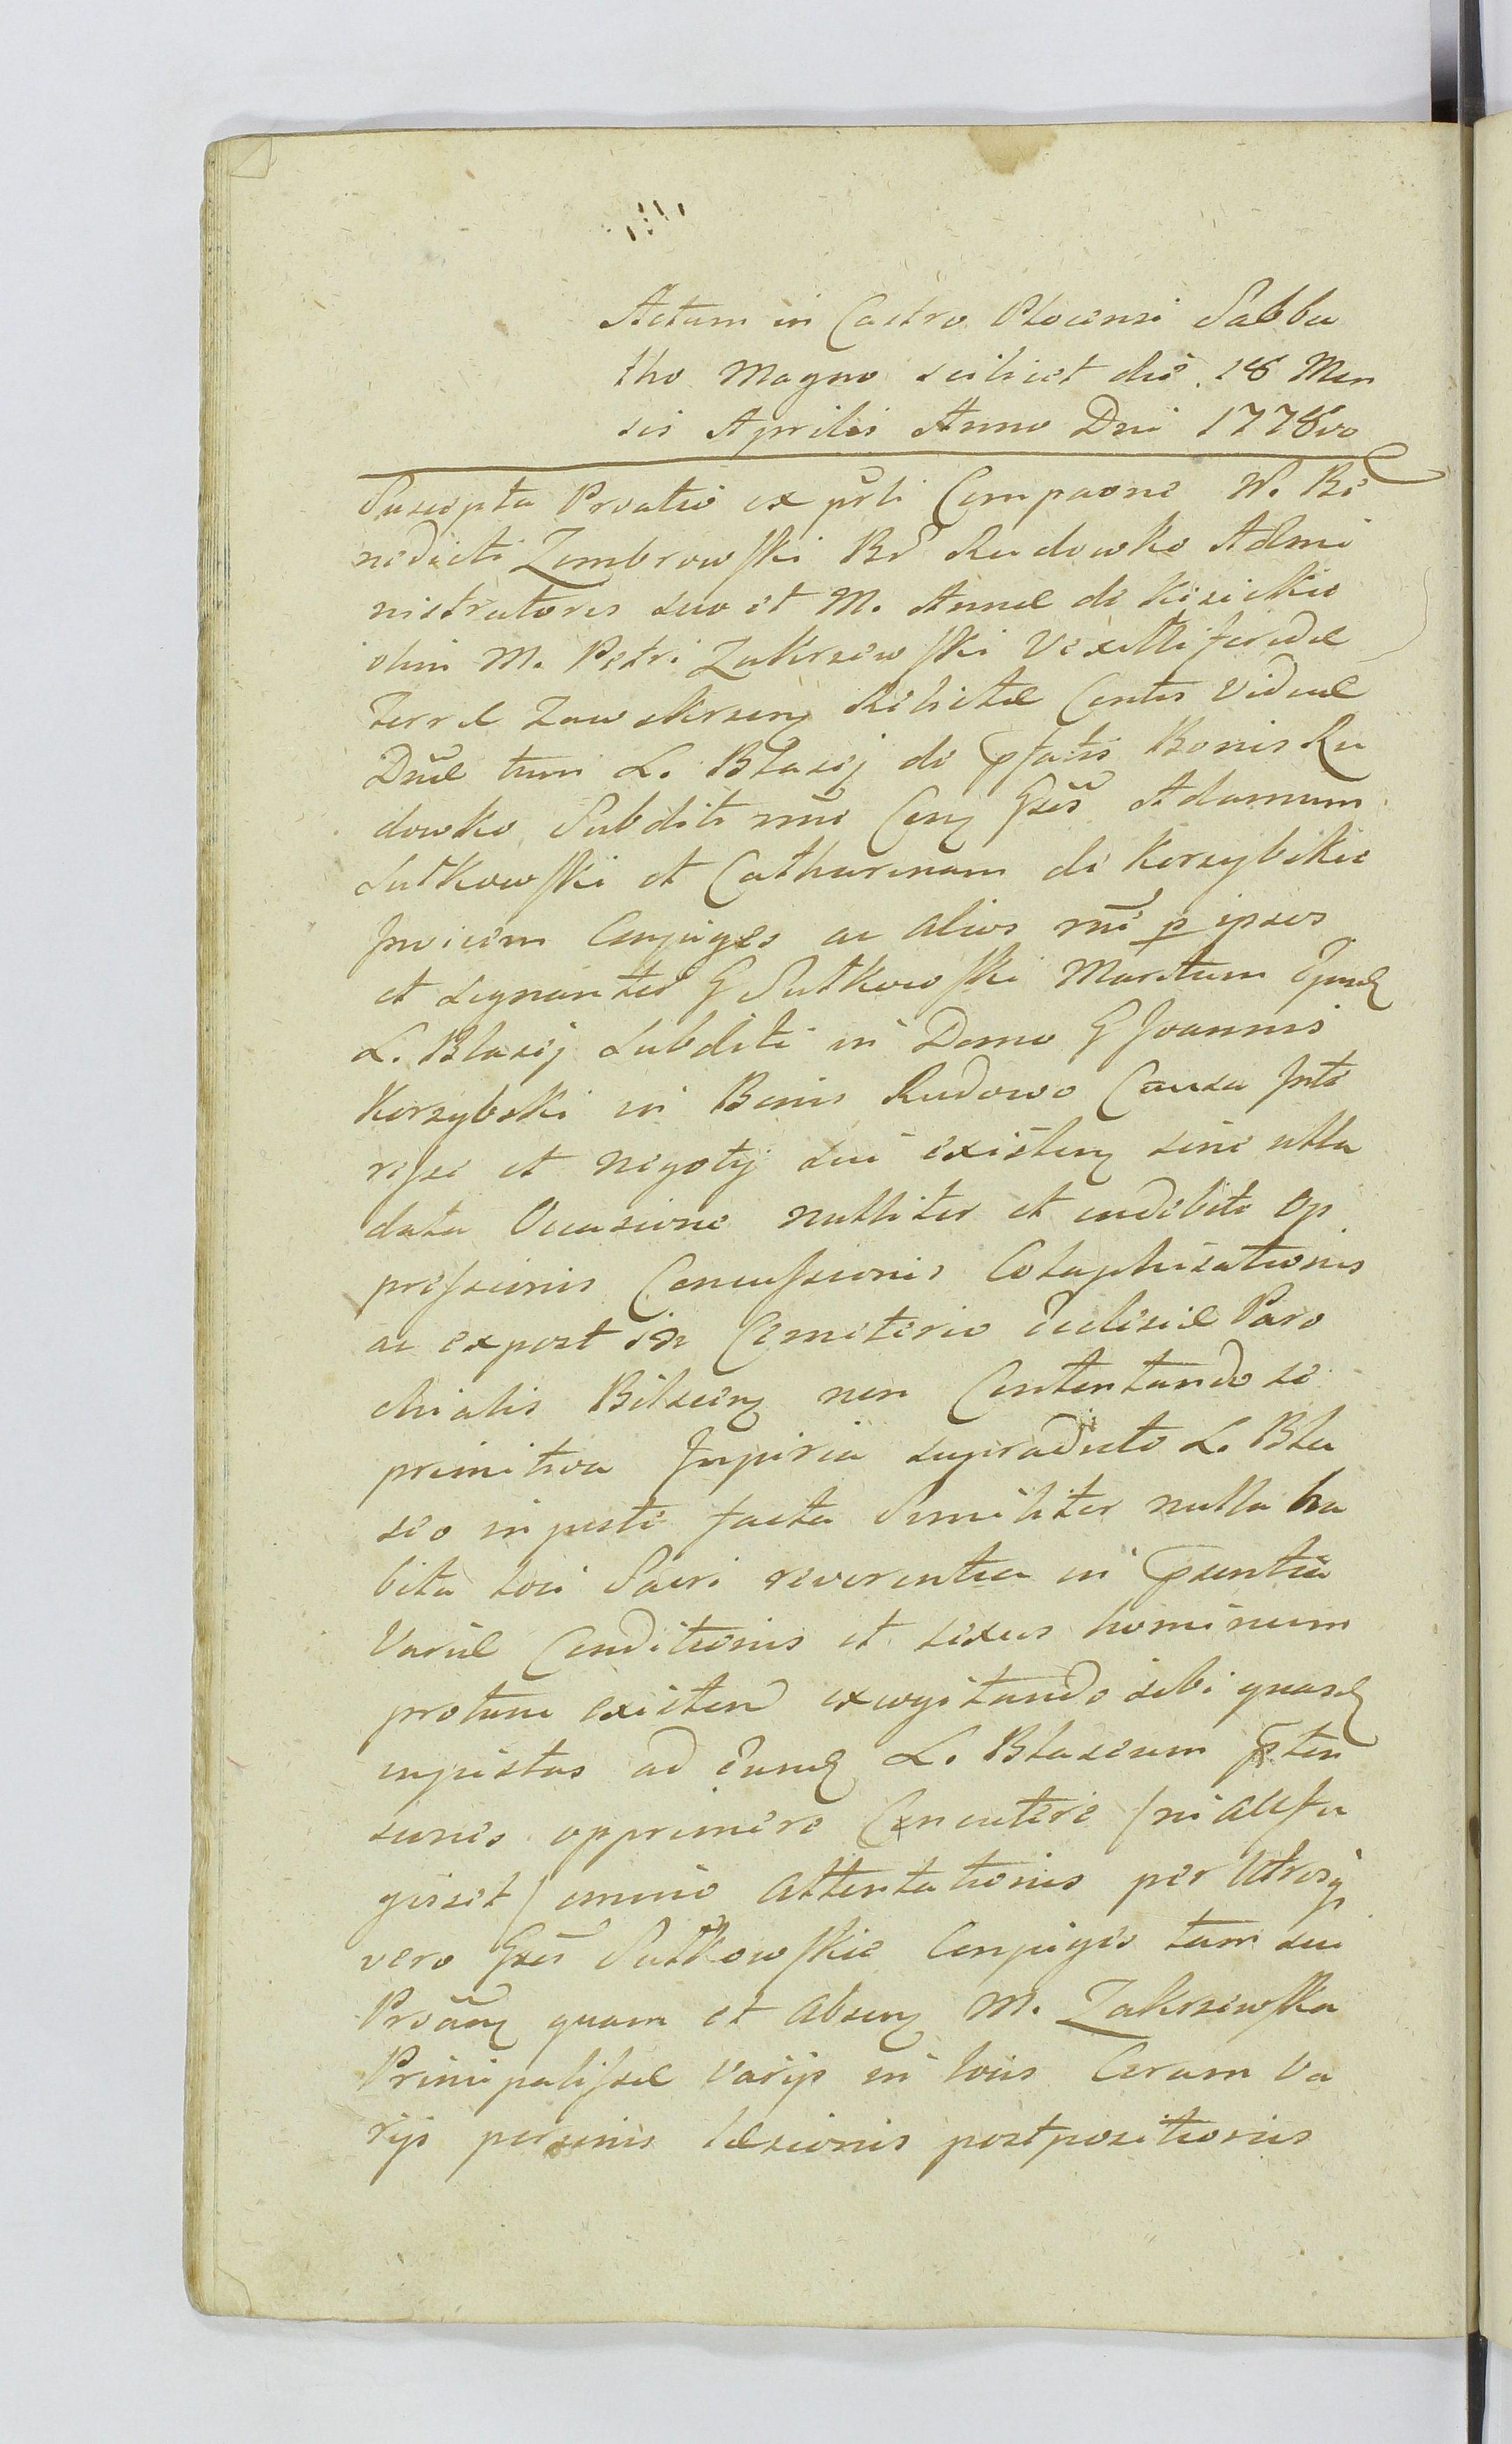 Actum in Castro Plocensi Sabba
tho Magno scilicet die 18 Men
sis Aprilis Anno Dni 1778vo
Suscepta Protatio ex prti Compaone N. Be
nedicti Zembrowski Bd Rudowko Admi
nistratoris suo et M. Annæ de Kisickie
olim M. Petri Zakrzewski Vexilliferidæ
Terræ Zawskrzen Relictæ Contis Viduæ
Dnæ tum L. Blasij de pfatis Bonis Ru
dowko Subditi nnie Con Gsos Adamum
Sutkowski et Catharinam de Korzybskie
Invicem Conjuges ac alios rne p ipsos
et signanter G Sutkowski Maritum Ejusd
L. Blasij Subditi in Domo G Joannis
Korzybski in Bonis Rudowo Causa Inte
resse et negotij sui existen sine ulla
data Occasione nulliter et indebite Op
pressionis Concussionis Colaphisationis
ac expost in Cemeterio Ecclesiæ Paro
chialis Bilscen non Contentando se
primitiva Injuria supradicto L. Bla
sio injuste facta Similiter nulla ha
bita loci Sacri reverentia in psentia
Variæ Conditionis et sexus hominum
protunc existen excogitando sibi quasd
injustas ad Eund L. Blasium pten
siones opprimere Concutere /ni aufu
gisset/ omnio Attentationis per Utrosq
vero Gsos Sutkowskie Conjuges tam sui
Protan quam et absen M. Zakrzewska
Principalissæ Varijs in locis Coram Va
rijs personis læsionis postpositionis